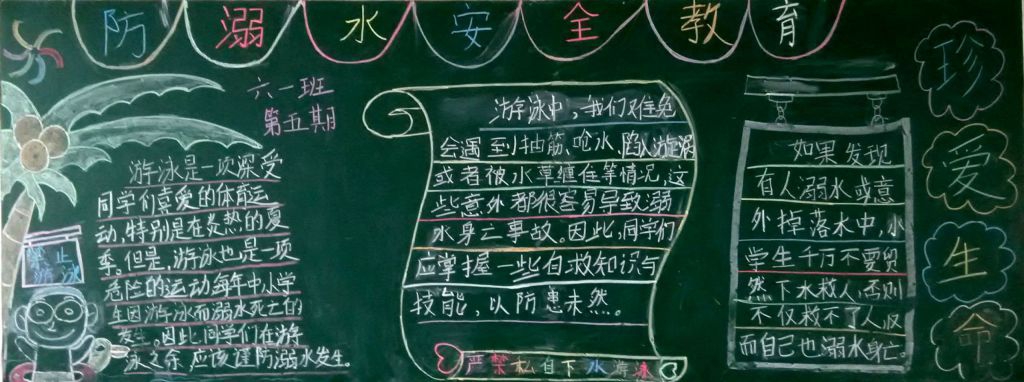 防溺水安全教育
六一班
第五期
游泳是一项深受
同学们喜爱的体育运
动,特别是在炎热的夏
季。但是,游泳也是一项
危险的运动每年中小学
生因游泳而溺水死亡的
发生。因此同学们在游
泳之余,应该谨防溺水发生。
禁止
游泳
游泳中,我们难免
会遇到抽筋、呛水、陷入漩涡
或者被水草缠住等情况,这
些意外都很容易导致溺
水身亡事故。因此,同学们
应掌握一些自救知识与
技能,以防患未然。
严禁私自下水游泳
如果发现
有人溺水或意
外掉落水中,小
学生千万不要贸
然下水救人,否则
不仅救不了人反
而自己也溺水身亡。
珍
爱
生
命